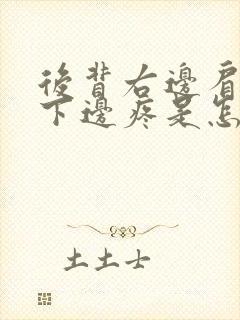 後背右邊肩
下邊疼是怎
土土士